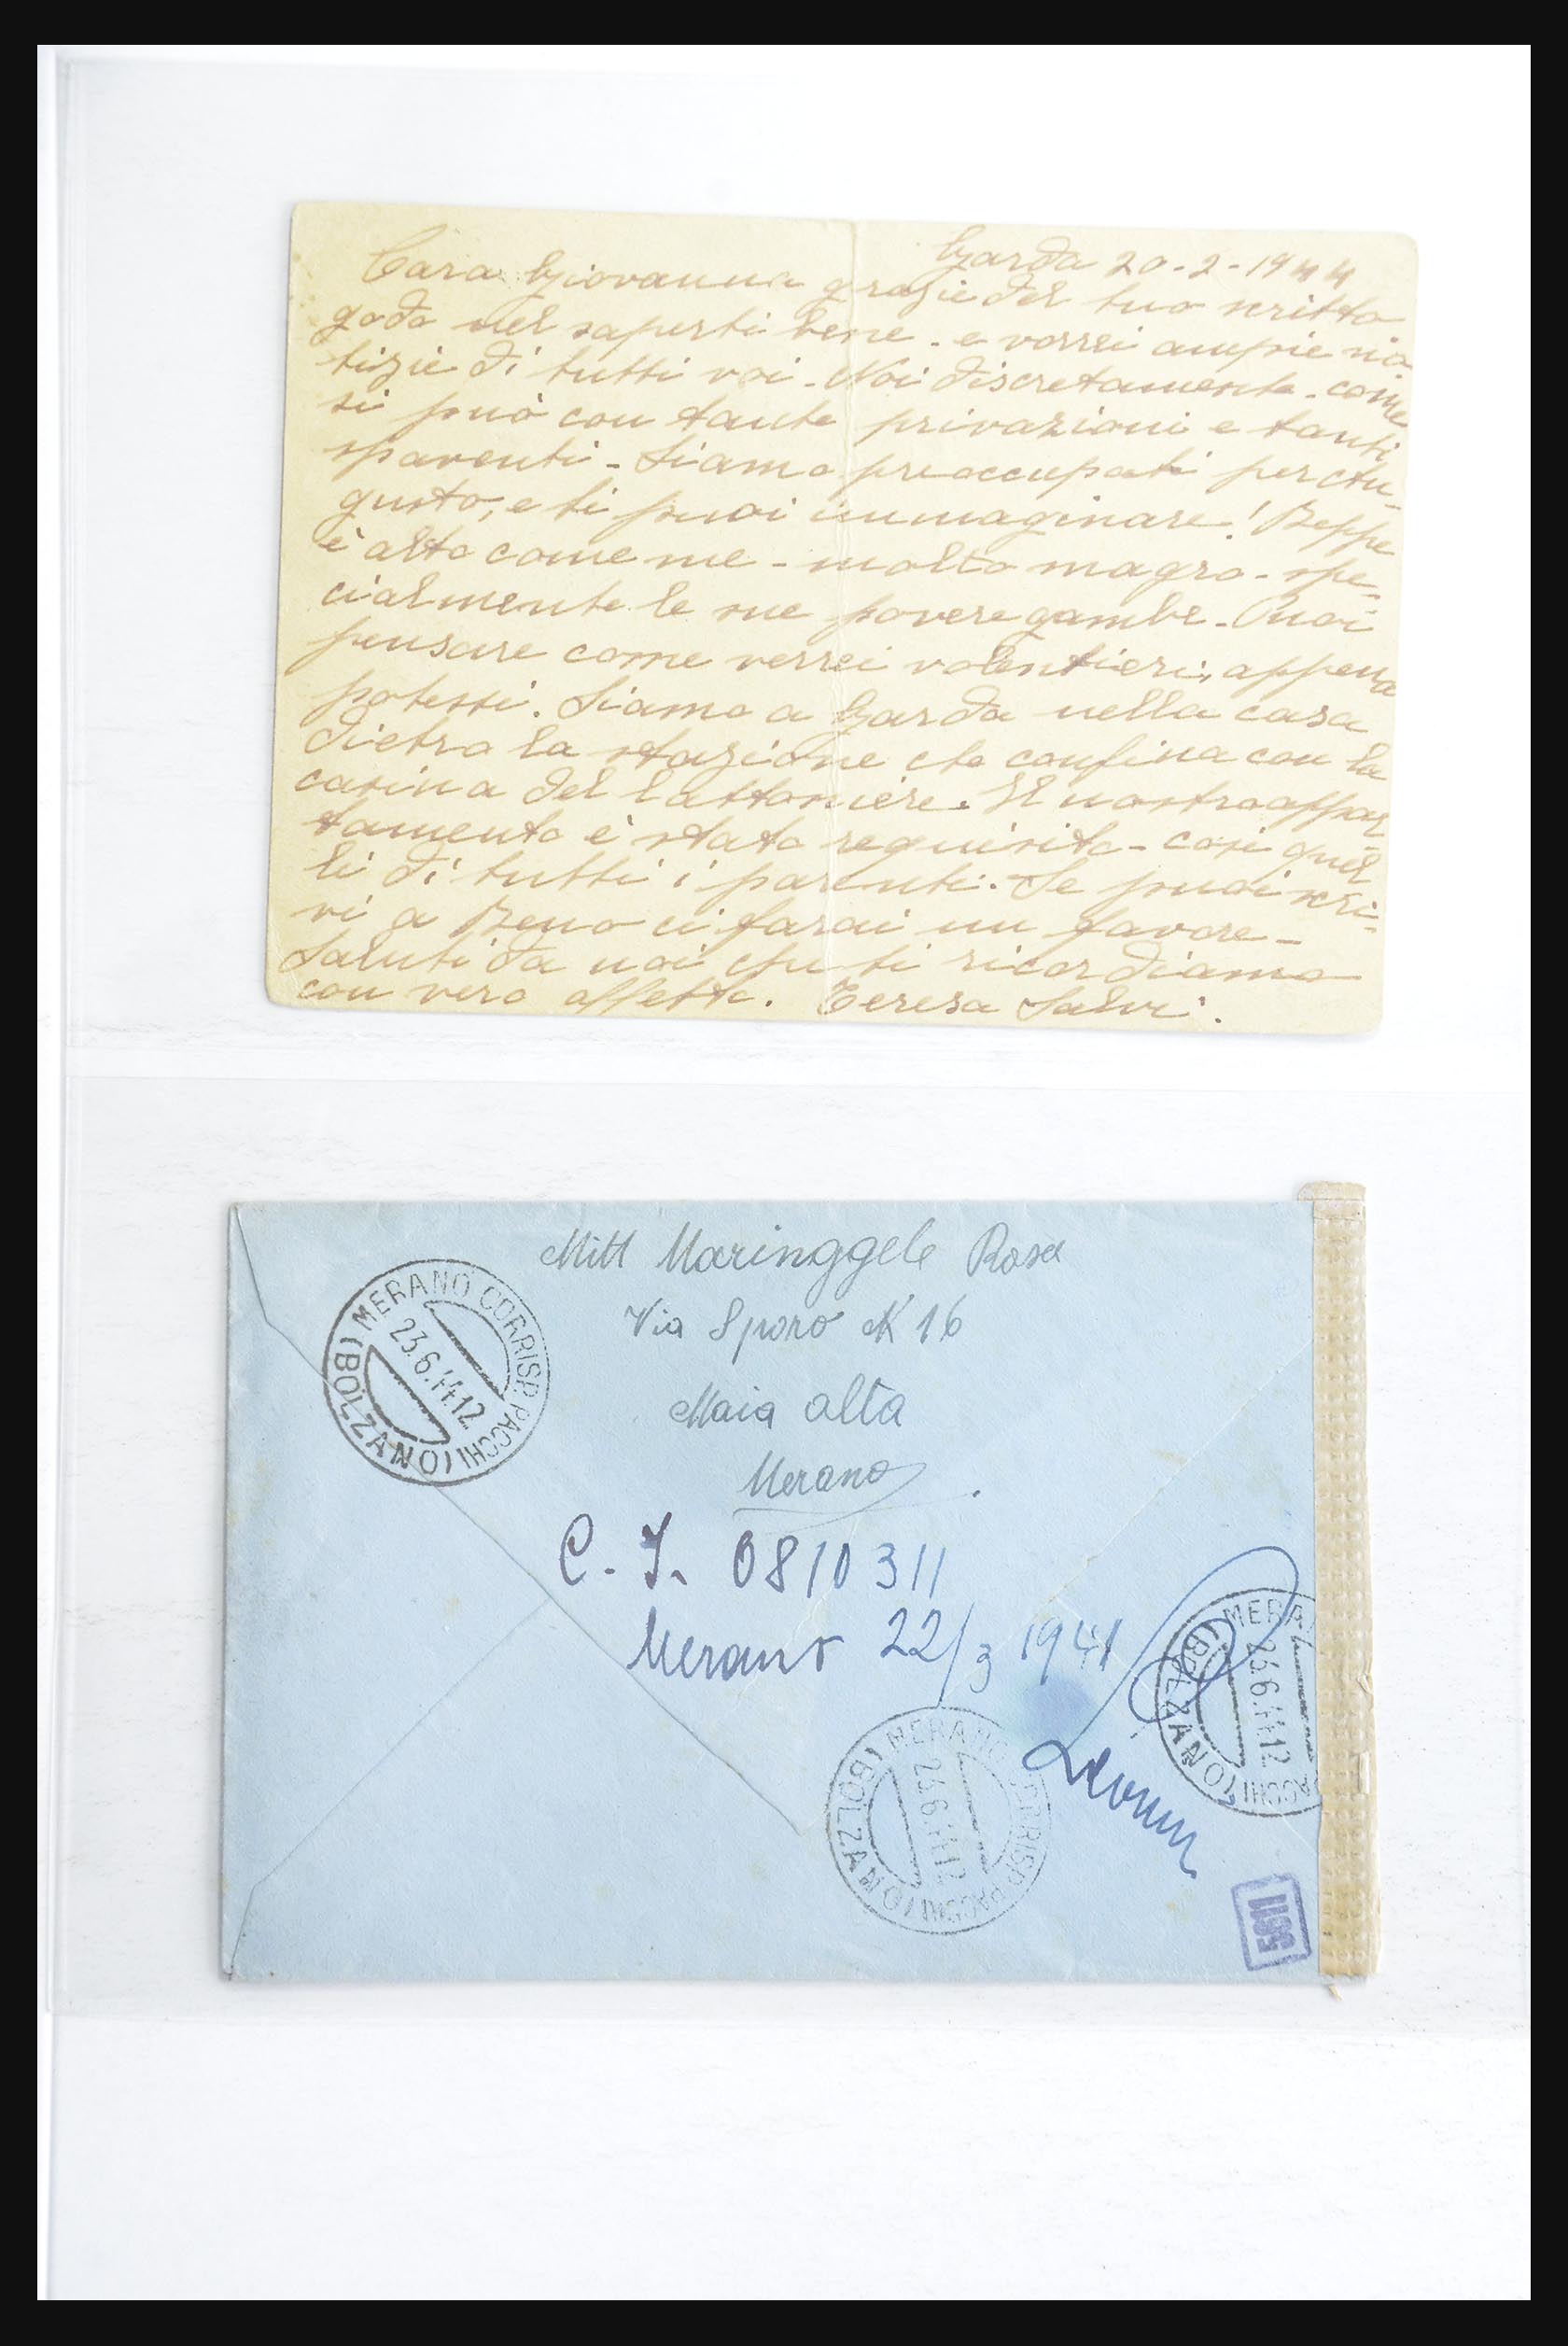 Garda 20-2-1944
Cara Giovanna grazie del tuo scritto
godo nel saperti bene. e vorrei ampie no
tizie di tutti voi. Noi discretamente. come
si può con tante privazioni e tanti
spaventi - Siamo preoccupati per Au-
gusto, e ti puoi immaginare! Beppe
è alto come me - molto magro - spe-
cialmente le sue povere gambe. Puoi
pensare come verrei volentieri, appena
potessi. Siamo a Garda nella casa
dietro la stazione che confina con la
casina del lattoniere. Il nostro appar-
tamento è stato requisito - così quel
li di tutti i parenti. Se puoi scri-
vi a Beno ci farai un favore -
Saluti da noi che ti ricordiamo
con vero affetto. Teresa Salvi.
Mitt Maringgele Rosa
Via Sporo N 16
Maia alta
Merano
C. I. 0810311
Merano 22/3 1941
MERANO CORRISP. PACCHI
(BOLZANO)
23.6.44.12
MERA
23.6.44.12
(BOLZANO)
ACCHI
MERANO CORRISP. PACCHI
23.6.44.12
(BOLZANO)
5611